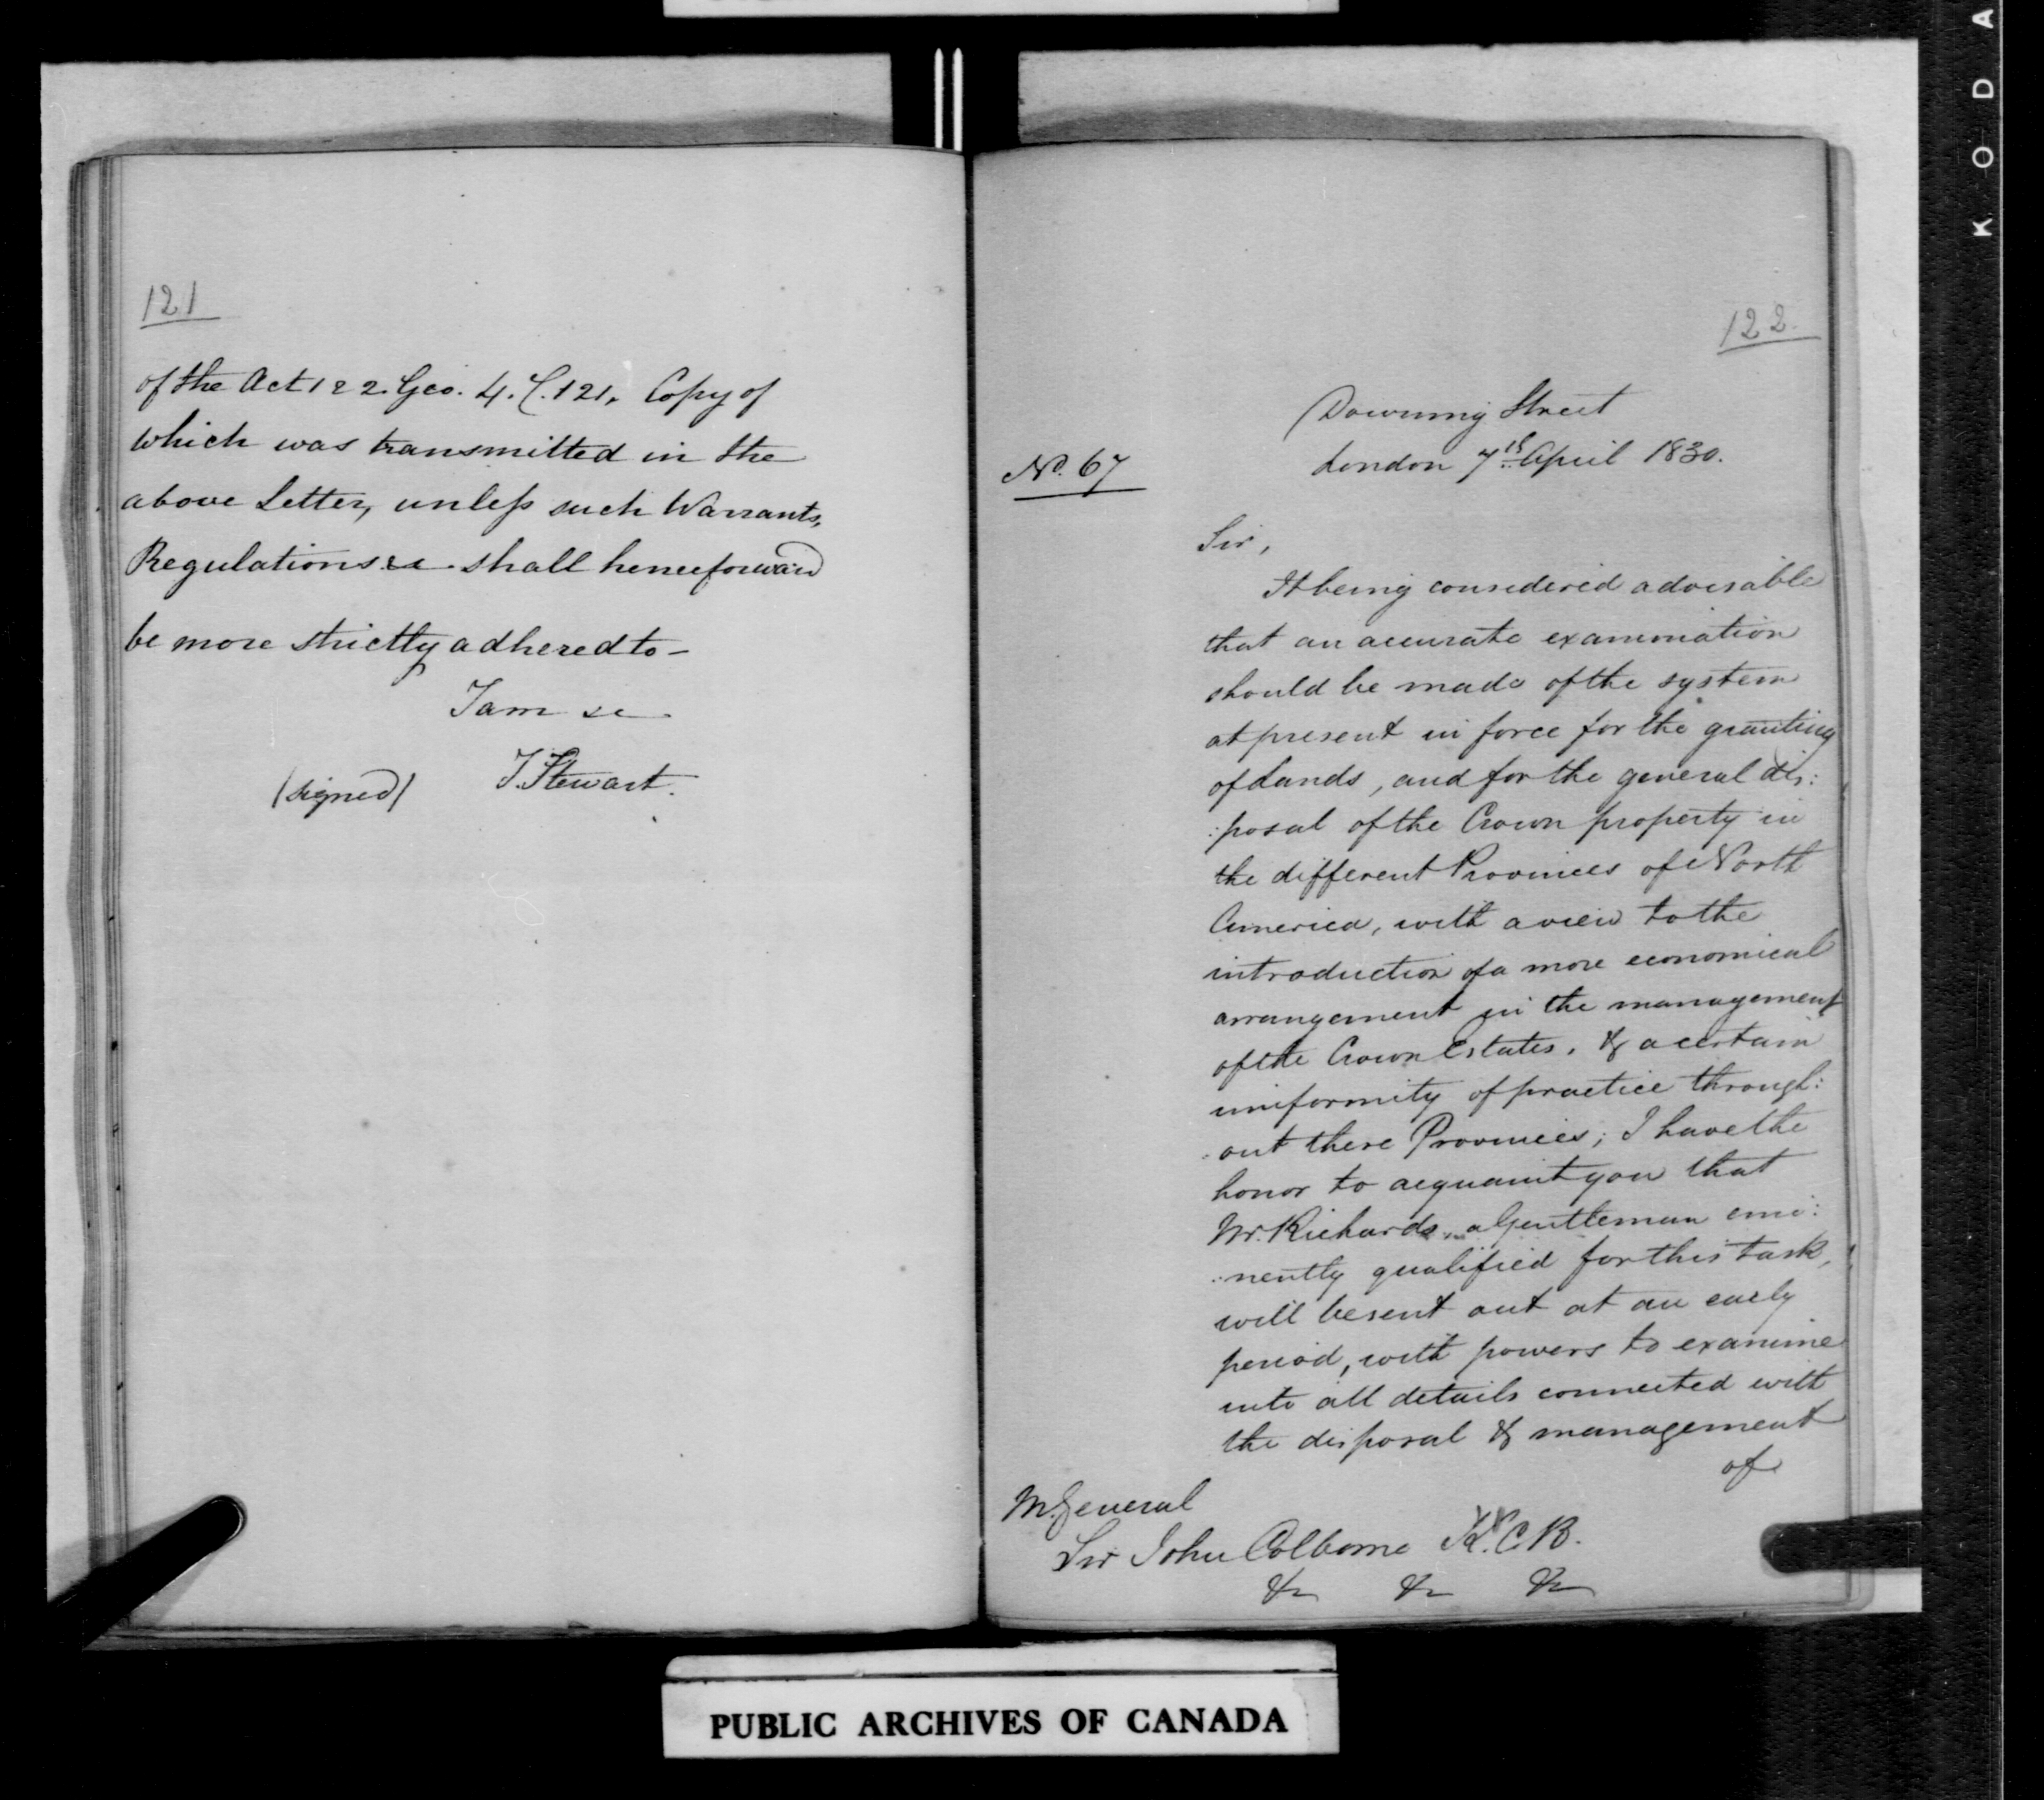 121
of the Act 1 & 2 Geo. 4. C. 121, Copy of
which was transmitted in the
above Letter, unless such Warrants,
Regulations &c shall henceforward
be more strictly adhered to –
I am &c
(signed) J. Stewart.
122.
Downing Street
London 7th April 1830.
No. 67
Sir,
It being considered advisable
that an accurate examination
should be made of the system
at present in force for the granting
of Lands, and for the general dis:
:posal of the Crown property in
the different Provinces of North
America, with a view to the
introduction of a more economical
arrangement in the management
of the Crown Estates, & a certain
uniformity of practice through:
:out these Provinces; I have the
honor to acquaint you that
Mr. Richards a Gentleman emi:
:nently qualified for this task,
will be sent out at an early
period, with powers to examine
into all details connected with
the disposal & management
of
M. General
Sir John Colborne K.C.B.
&c &c &c
PUBLIC ARCHIVES OF CANADA
K O D A